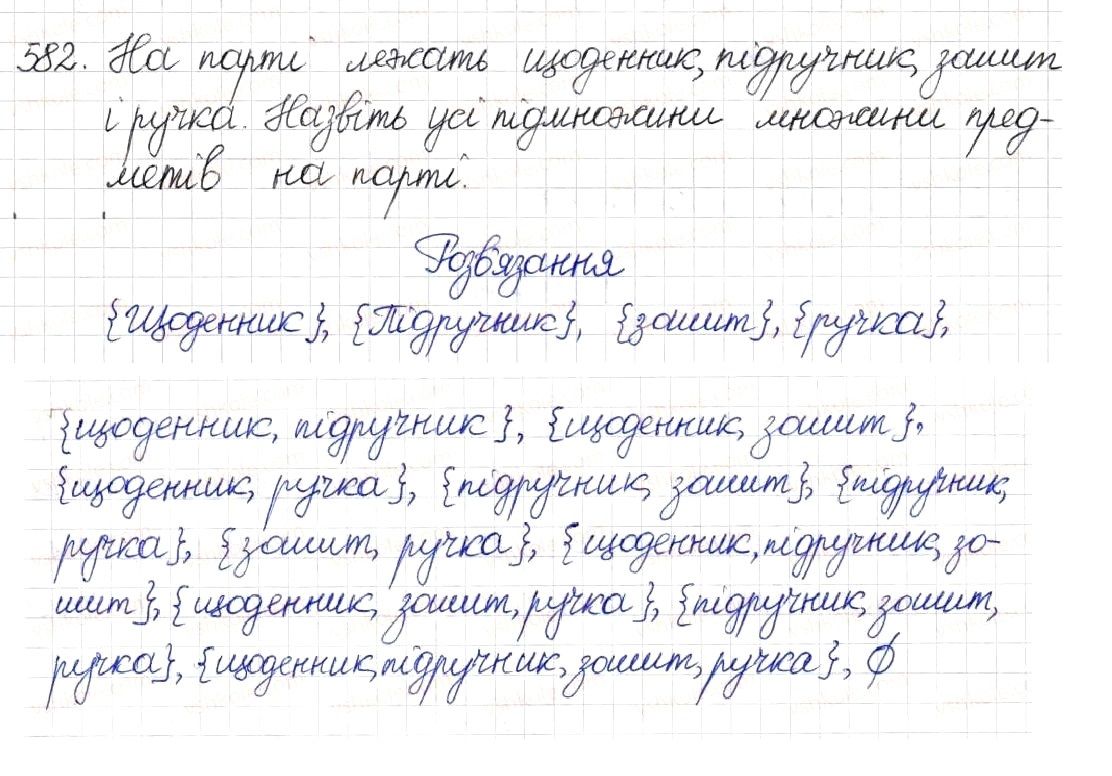 582. На парті лежать щоденник, підручник, зошит
і ручка. Назвіть усі підмножини множини пред-
метів на парті.
Розв'язання
{Щоденник}, {Підручник}, {зошит}, {ручка},
{щоденник, підручник}, {щоденник, зошит},
{щоденник, ручка}, {підручник, зошит}, {підручник,
ручка}, {зошит, ручка}, {щоденник, підручник, зо-
шит}, {щоденник, зошит, ручка}, {підручник, зошит,
ручка}, {щоденник, підручник, зошит, ручка}, ∅